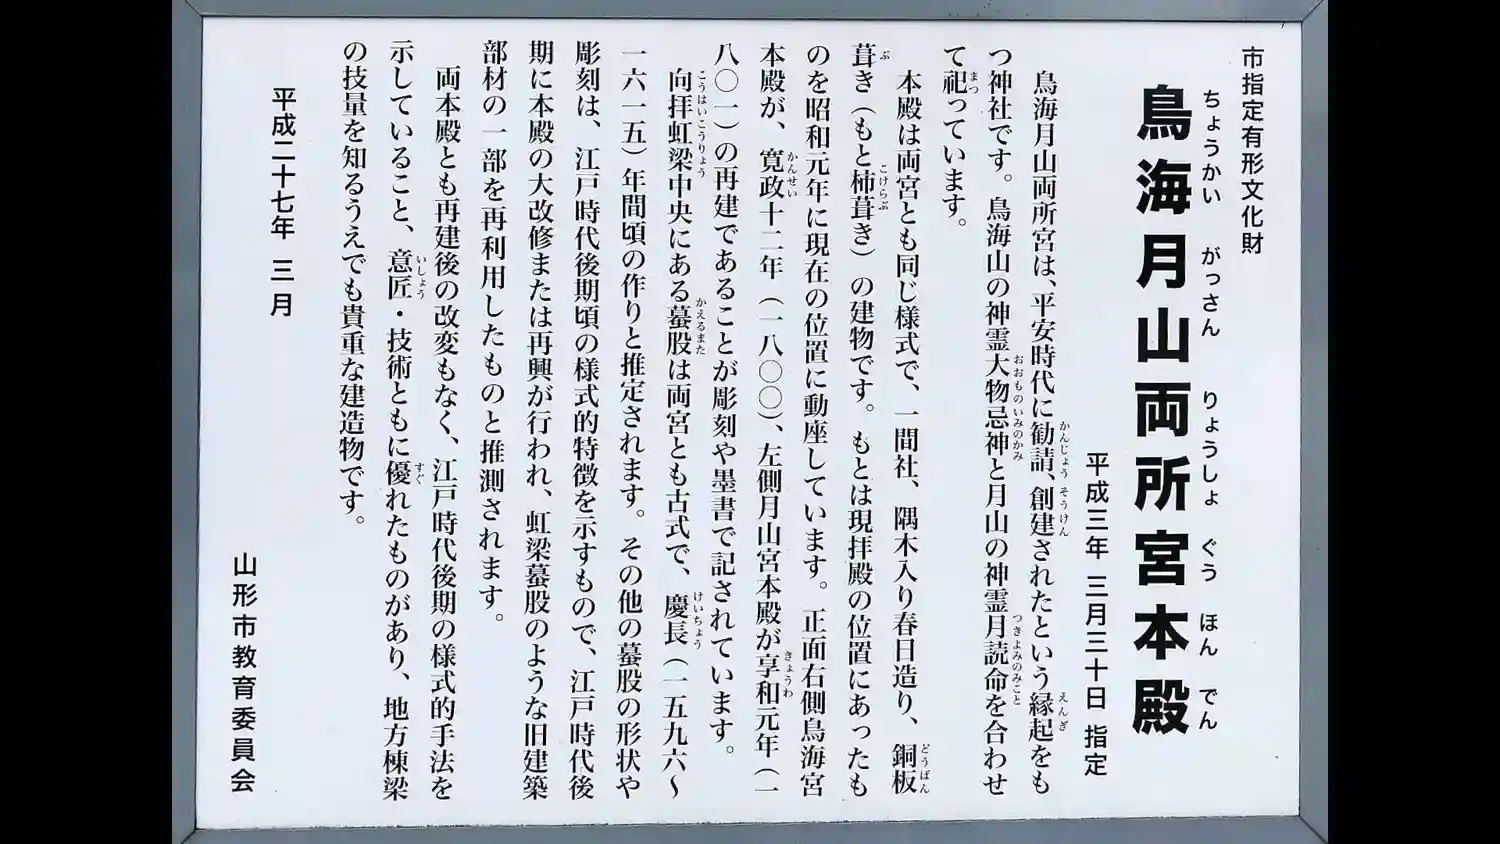 市指定有形文化財
鳥海月山両所宮本殿
ちょうかい がっさん りょうしょ ぐう ほん でん
平成三年 三月三十日 指定
鳥海月山両所宮は、平安時代に勧請、創建されたという縁起をも
かんじょう そうけん えんぎ
つ神社です。鳥海山の神霊大物忌神と月山の神霊月読命を合わせ
おおものいみのかみ つきよみのみこと
て祀っています。
まつ
本殿は両宮とも同じ様式で、一間社、隅木入り春日造り、銅板
どうばん
葺き（もと杮葺き）の建物です。もとは現拝殿の位置にあったも
ぶ こけらぶ
のを昭和元年に現在の位置に動座しています。正面右側鳥海宮
本殿が、寛政十二年（一八〇〇）、左側月山宮本殿が享和元年（一
かんせい きょうわ
八〇一）の再建であることが彫刻や墨書で記されています。
向拝虹梁中央にある蟇股は両宮とも古式で、慶長（一五九六～
こうはいこうりょう かえるまた けいちょう
一六一五）年間頃の作りと推定されます。その他の蟇股の形状や
彫刻は、江戸時代後期頃の様式的特徴を示すもので、江戸時代後
期に本殿の大改修または再興が行われ、虹梁蟇股のような旧建築
部材の一部を再利用したものと推測されます。
両本殿とも再建後の改変もなく、江戸時代後期の様式的手法を
示していること、意匠・技術ともに優れたものがあり、地方棟梁
いしょう すぐ
の技量を知るうえでも貴重な建造物です。
平成二十七年 三月
山形市教育委員会